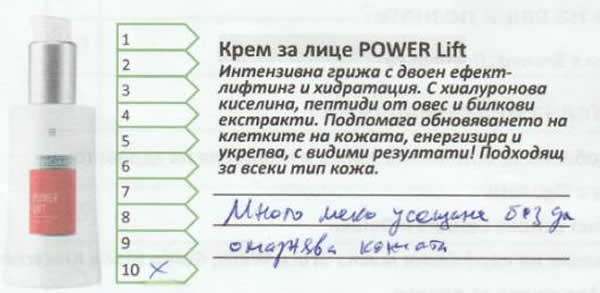 Крем за лице POWER Lift
Интензивна грижа с двоен ефект-
лифтинг и хидратация. С хиалуронова
киселина, пептиди от овес и билкови
екстракти. Подпомага обновяването на
клетките на кожата, енергизира и
укрепва, с видими резултати! Подходящ
за всеки тип кожа.
1
2
3
4
5
6
7
8
9
10 x
Много меко усещане без да
омазнява кожата
POWER
LIFT